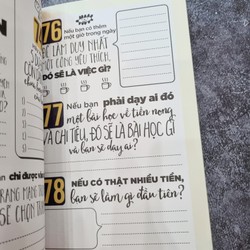 76
Nếu bạn có thêm
một giờ trong ngày
ĐỂ LÀM DUY NHẤT
MỘT CÔNG VIỆC YÊU THÍCH,
ĐÓ SẼ LÀ VIỆC GÌ?
77
Nếu bạn phải dạy ai đó
một bài học về tiền nong
VÀ CHI TIÊU, ĐÓ SẼ LÀ BÀI HỌC GÌ
và bạn sẽ dạy ai?
78
NẾU CÓ THẬT NHIỀU TIỀN,
bạn sẽ làm gì đầu tiên?
chỉ được
TRANG MẠNG
SẼ CHỌN